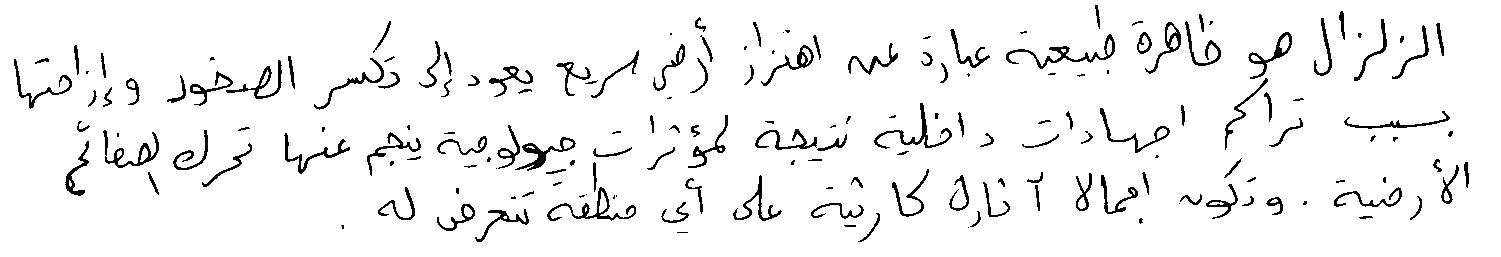 الزلزال هو ظاهرة طبيعية عبارة عن اهتزاز أرضي سريع يعود إلى تكسر الصخور وإزاحتها
بسبب تراكم اجهادات داخلية نتيجة لمؤثرات جيولوجية ينجم عنها تحرك الصفائح
الأرضية . وتكون اجمالا آثاره كارثية على أي منطقة تتعرض له .